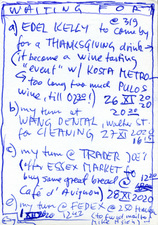 WAITING FOR
a) EDEL KELLY @ 3/9 to come by
for a THANKSGIVING drink
it became a wine tasting
"event" w/ KOSTA METRO
too long too much PULOS
wine, till 02°°! 26 XI 20 20
b) my turn at 20 30
WANG DENTAL, walk St.
for CLEANING 27 XI 2020
c) my turn @ TRADER JOE'S
after ESSEX MARKET to 12:00
buy some great bread @
Café d'Avignon 28 XI 20
d) my turn @ FEDEX @ 250
1 XI 2020